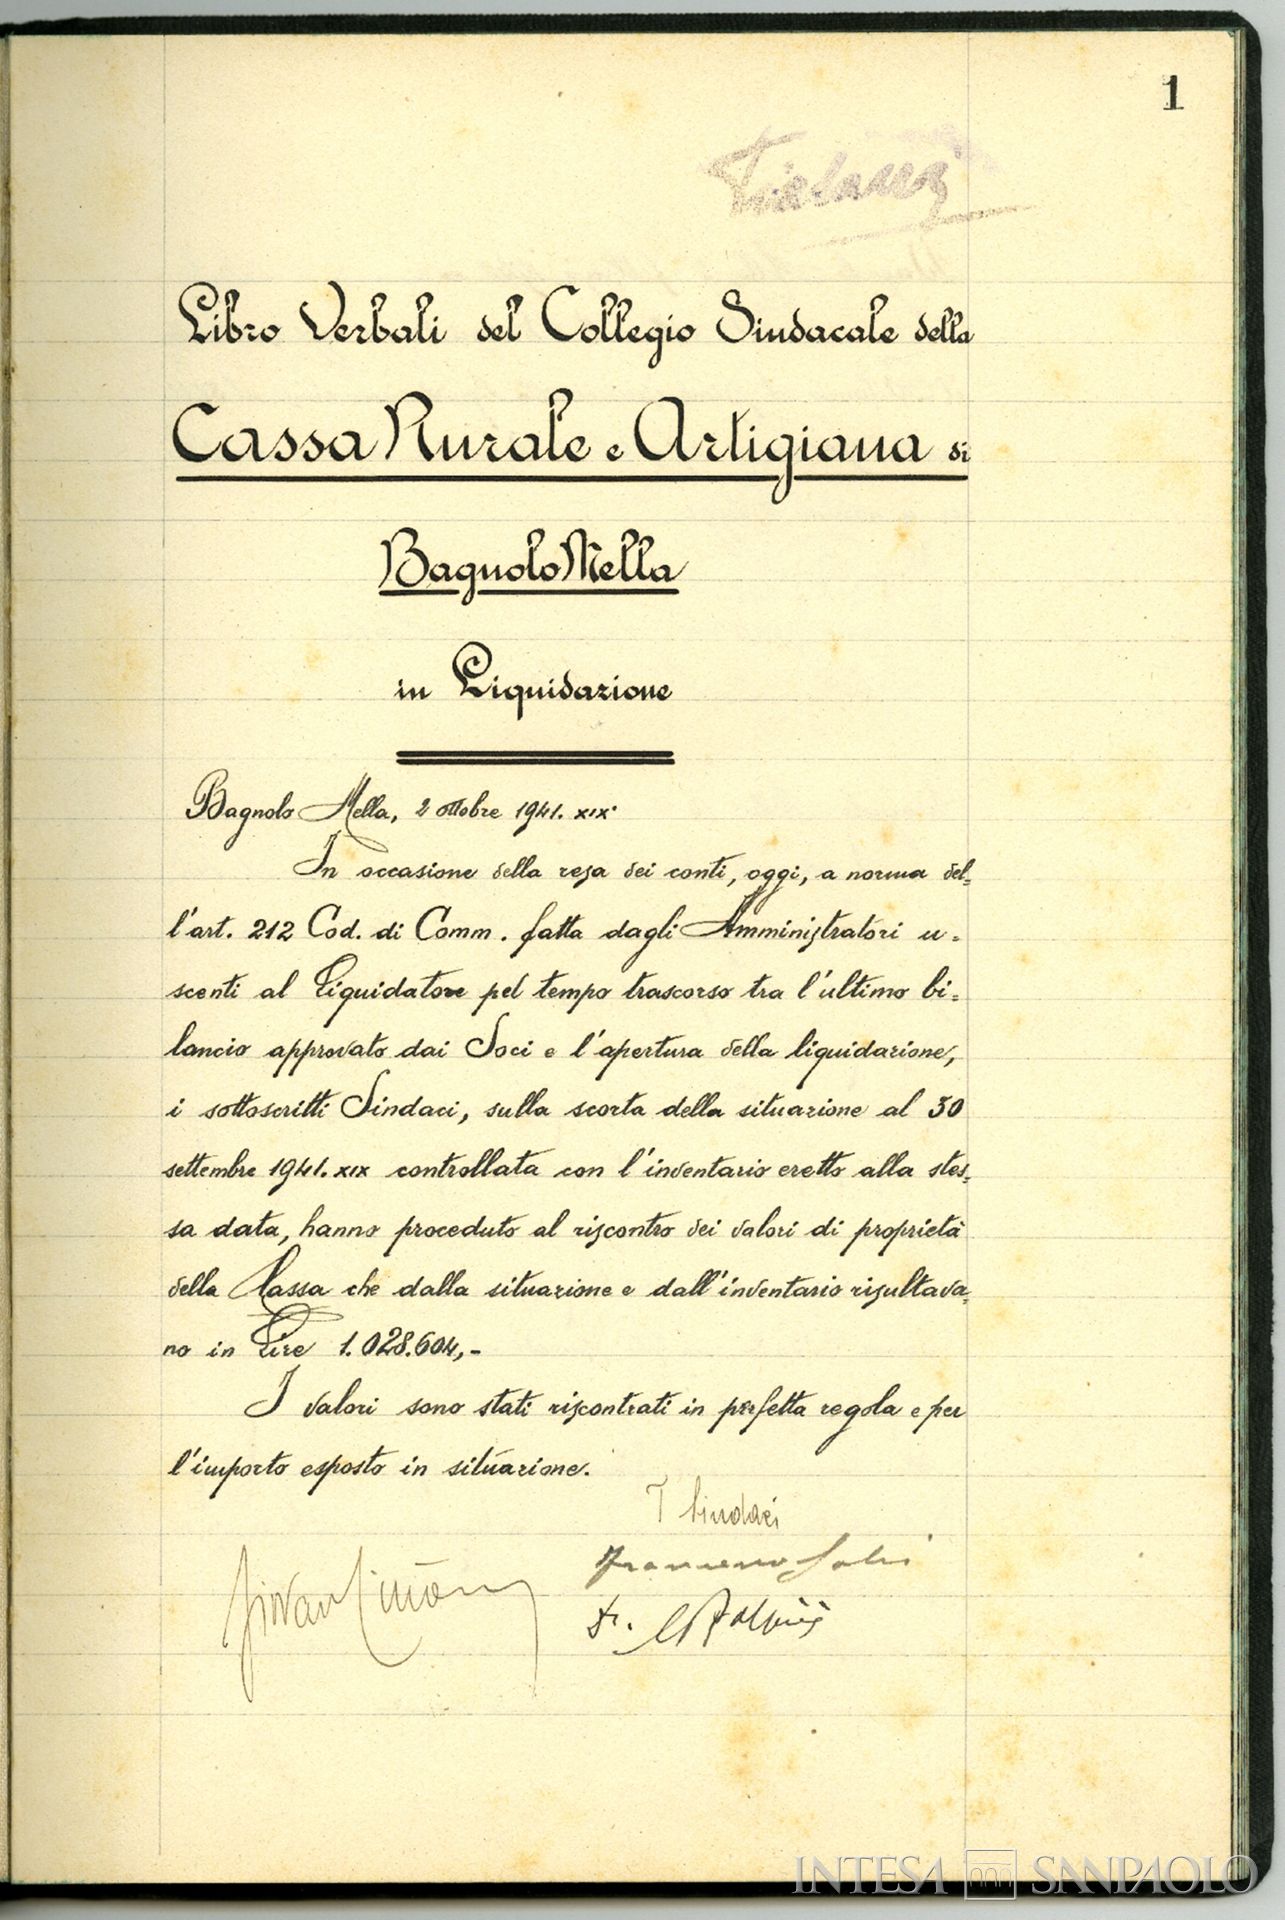 1
Libro Verbali del Collegio Sindacale della
Cassa Rurale e Artigiana di
Bagnolo Mella
in Liquidazione
Bagnolo Mella, 2 ottobre 1941. XIX°
In occasione della resa dei conti, oggi, a norma del-
l'art. 212 Cod. di Comm. fatta dagli Amministratori u-
scenti al Liquidatore pel tempo trascorso tra l'ultimo bi-
lancio approvato dai Soci e l'apertura della liquidazione,
i sottoscritti Sindaci, sulla scorta della situazione al 30
settembre 1941. XIX controllata con l'inventario eretto alla stes-
sa data, hanno proceduto al riscontro dei valori di proprietà
della Cassa che dalla situazione e dall'inventario risultava-
no in Lire 1.028.604,-
I valori sono stati riscontrati in perfetta regola e per
l'importo esposto in situazione.
I Sindaci
Francesco
Dr.
INTESA SANPAOLO